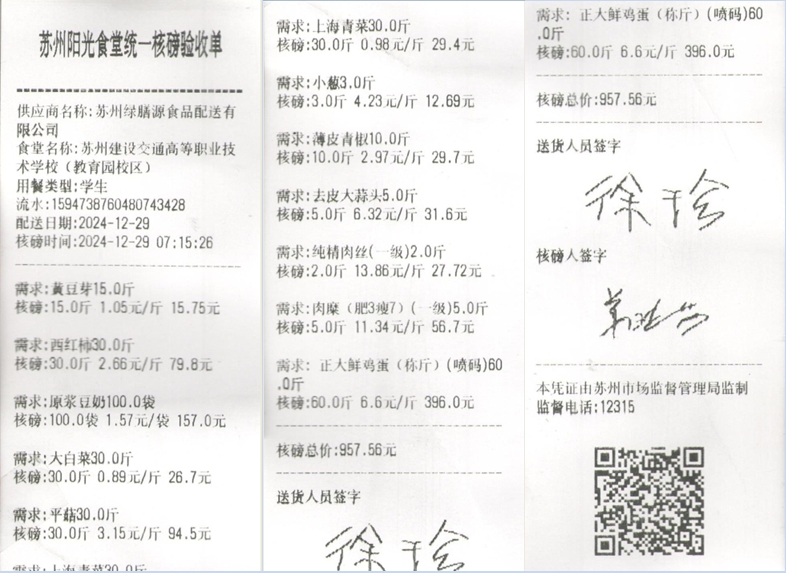 苏州阳光食堂统一核磅验收单
供应商名称:苏州绿膳源食品配送有
限公司
食堂名称:苏州建设交通高等职业技
术学校（教育园校区）
用餐类型:学生
流水:1594738760480743428
配送日期:2024-12-29
核磅时间:2024-12-29 07:15:26
需求:黄豆芽15.0斤
核磅:15.0斤 1.05元/斤 15.75元
需求:西红柿30.0斤
核磅:30.0斤 2.66元/斤 79.8元
需求:原浆豆奶100.0袋
核磅:100.0袋 1.57元/袋 157.0元
需求:大白菜30.0斤
核磅:30.0斤 0.89元/斤 26.7元
需求:平菇30.0斤
核磅:30.0斤 3.15元/斤 94.5元
需求:上海青菜30.0斤
需求:上海青菜30.0斤
核磅:30.0斤 0.98元/斤 29.4元
需求:小葱3.0斤
核磅:3.0斤 4.23元/斤 12.69元
需求:薄皮青椒10.0斤
核磅:10.0斤 2.97元/斤 29.7元
需求:去皮大蒜头5.0斤
核磅:5.0斤 6.32元/斤 31.6元
需求:纯精肉丝(一级)2.0斤
核磅:2.0斤 13.86元/斤 27.72元
需求:肉糜（肥3瘦7）(一级)5.0斤
核磅:5.0斤 11.34元/斤 56.7元
需求: 正大鲜鸡蛋（称斤）(喷码)60
.0斤
核磅:60.0斤 6.6元/斤 396.0元
核磅总价:957.56元
送货人员签字
需求: 正大鲜鸡蛋（称斤）(喷码)60
.0斤
核磅:60.0斤 6.6元/斤 396.0元
核磅总价:957.56元
送货人员签字
核磅人签字
本凭证由苏州市场监督管理局监制
监督电话:12315